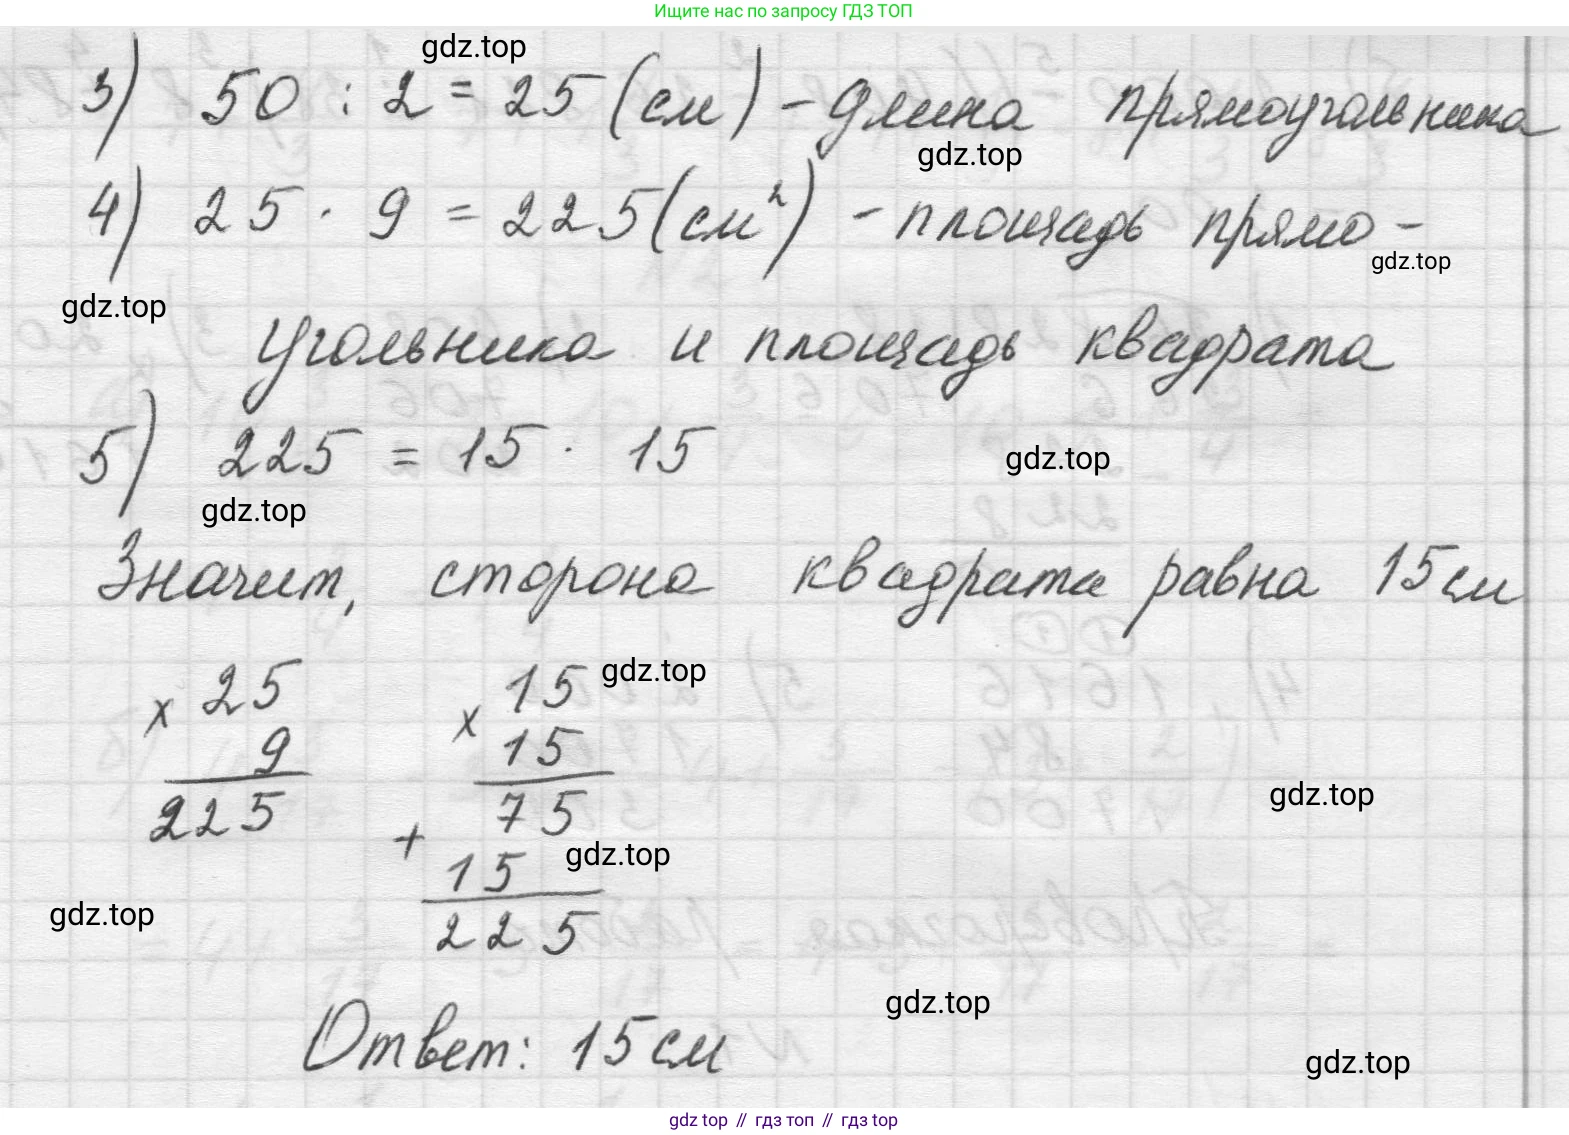 Ищите нас по запросу ГДЗ ТОП
gdz.top
3) 50 : 2 = 25 (см) - длина прямоугольника
gdz.top
4) 25 · 9 = 225 (см²) - площадь прямо-
gdz.top
gdz.top
угольника и площадь квадрата
5) 225 = 15 · 15
gdz.top
gdz.top
Значит, сторона квадрата равна 15 см
gdz.top
× 25
9
225
× 15
15
75
+ 15
225
gdz.top
gdz.top
gdz.top
gdz.top
Ответ: 15 см
gdz.top
gdz top // гдз топ // gdz top